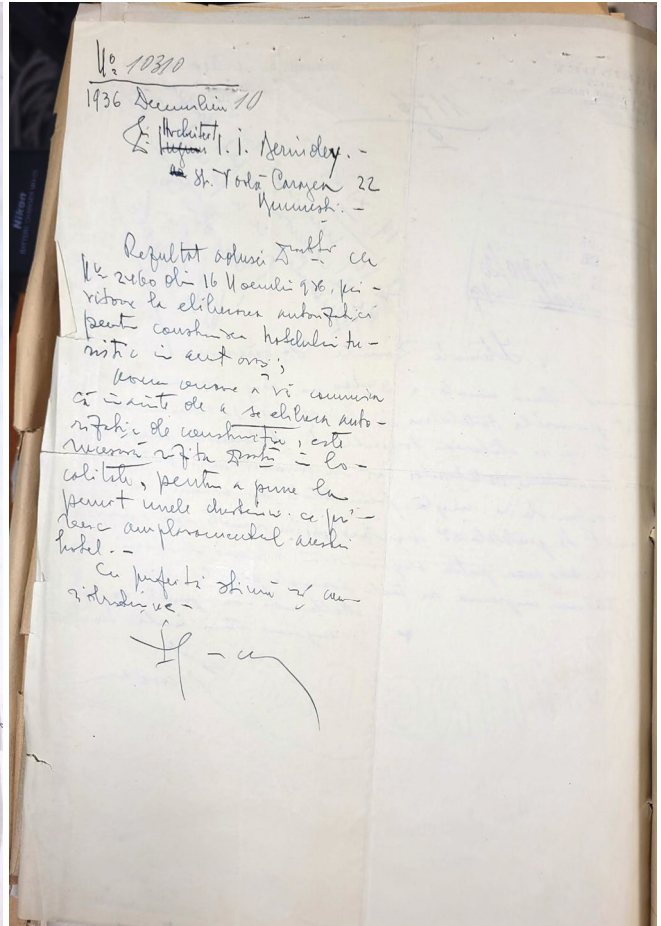 No. 10310
1936 Decembrie 10
D. Arhitect
I. I. Bernidey. -
Str. Vodă Caragea 22
București. -
Rezultat adresei Dvoastră cu
No. 2460 din 16 Noembrie 936, pri-
vitoare la eliberarea autorizației
pentru construirea hotelului tu-
ristic în acest oraș;
Avem onoare a vă comunica
că înainte de a se elibera auto-
rizație de construcție, este
necesară vizita Dvoastră în lo-
calitate, pentru a pune la
punct unele chestiuni ce pri-
vesc amplasamentul acestui
hotel. -
Cu perfectă stimă și con-
siderațiune -